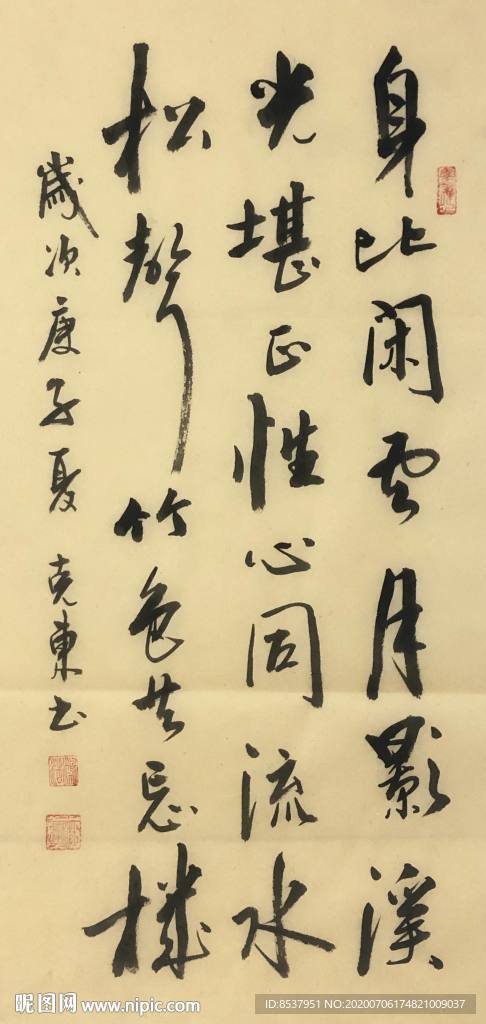 身比闲云月影溪
光堪正性心同流水
松聲竹色共忘機
歲次庚子夏 克東书
昵图网 www.nipic.com
ID:8537951 NO:20200706174821009037